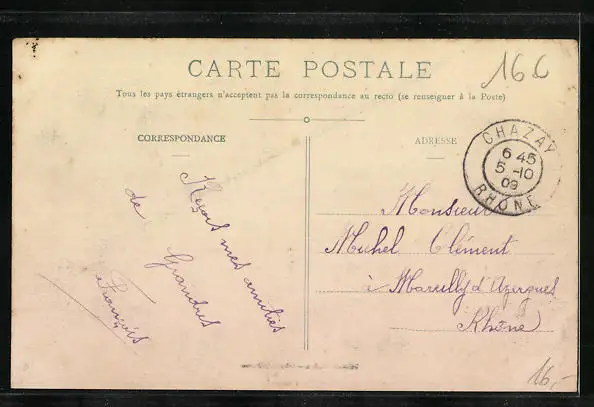 CARTE POSTALE
Tous les pays étrangers n'acceptent pas la correspondance au recto (se renseigner à la Poste)
166
CORRESPONDANCE
ADRESSE
CHAZAY
6 45
5 -10
09
RHÔNE
mes amitiés
de
François
Monsieur
Michel Clément
à Marcilly d'Azergues
Rhône
16,-